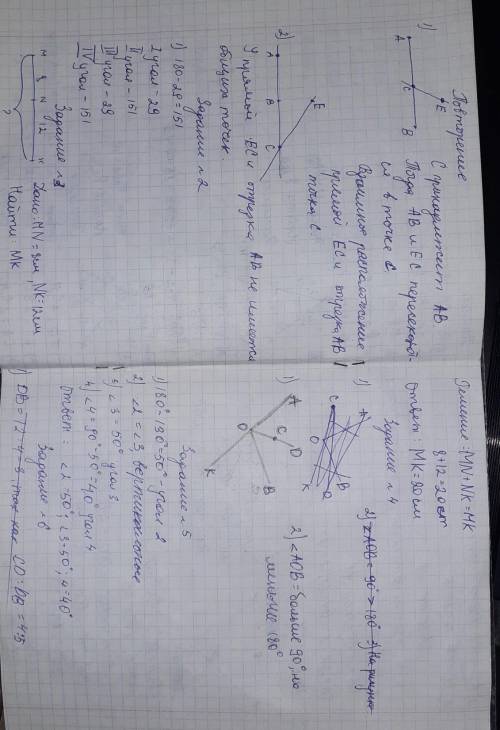 Повторение
1)
A
C
E
B
C принадлежит AB
Тогда AB и EC пересекают-
ся в точке C
Взаимное расположение
прямой EC и отрезка AB
точка C.
2)
A
B
C
E
У прямой EC и отрезка AB не имеется
общих точек.
Задание n 2
1) 180-29=151
I угол - 29
II угол - 151
III угол - 29
IV угол - 151
Задание n 3
M 8 N 12 K
?
Дано: MN = 8см, NK=12см
Найти: MK
Решение: MN+NK=MK
8+12=20см
Ответ: MK=20см
Задание n 4
1)
C
A
O
B
K
D
2) ∠AOB = 90° > 180° 3) На рисунке
1)
A
O
C
D
B
K
2) ∠AOB = больше 90°, но
меньше 180°
Задание n 5
1) 180°-130°=50° - угол 2
2) ∠2=∠3, вертикальные
3) ∠3=50° угол 3
4) ∠4=90°-50°=40° угол 4
Ответ: ∠2=50°; ∠3=50°; ∠4=40°
Задание n 6